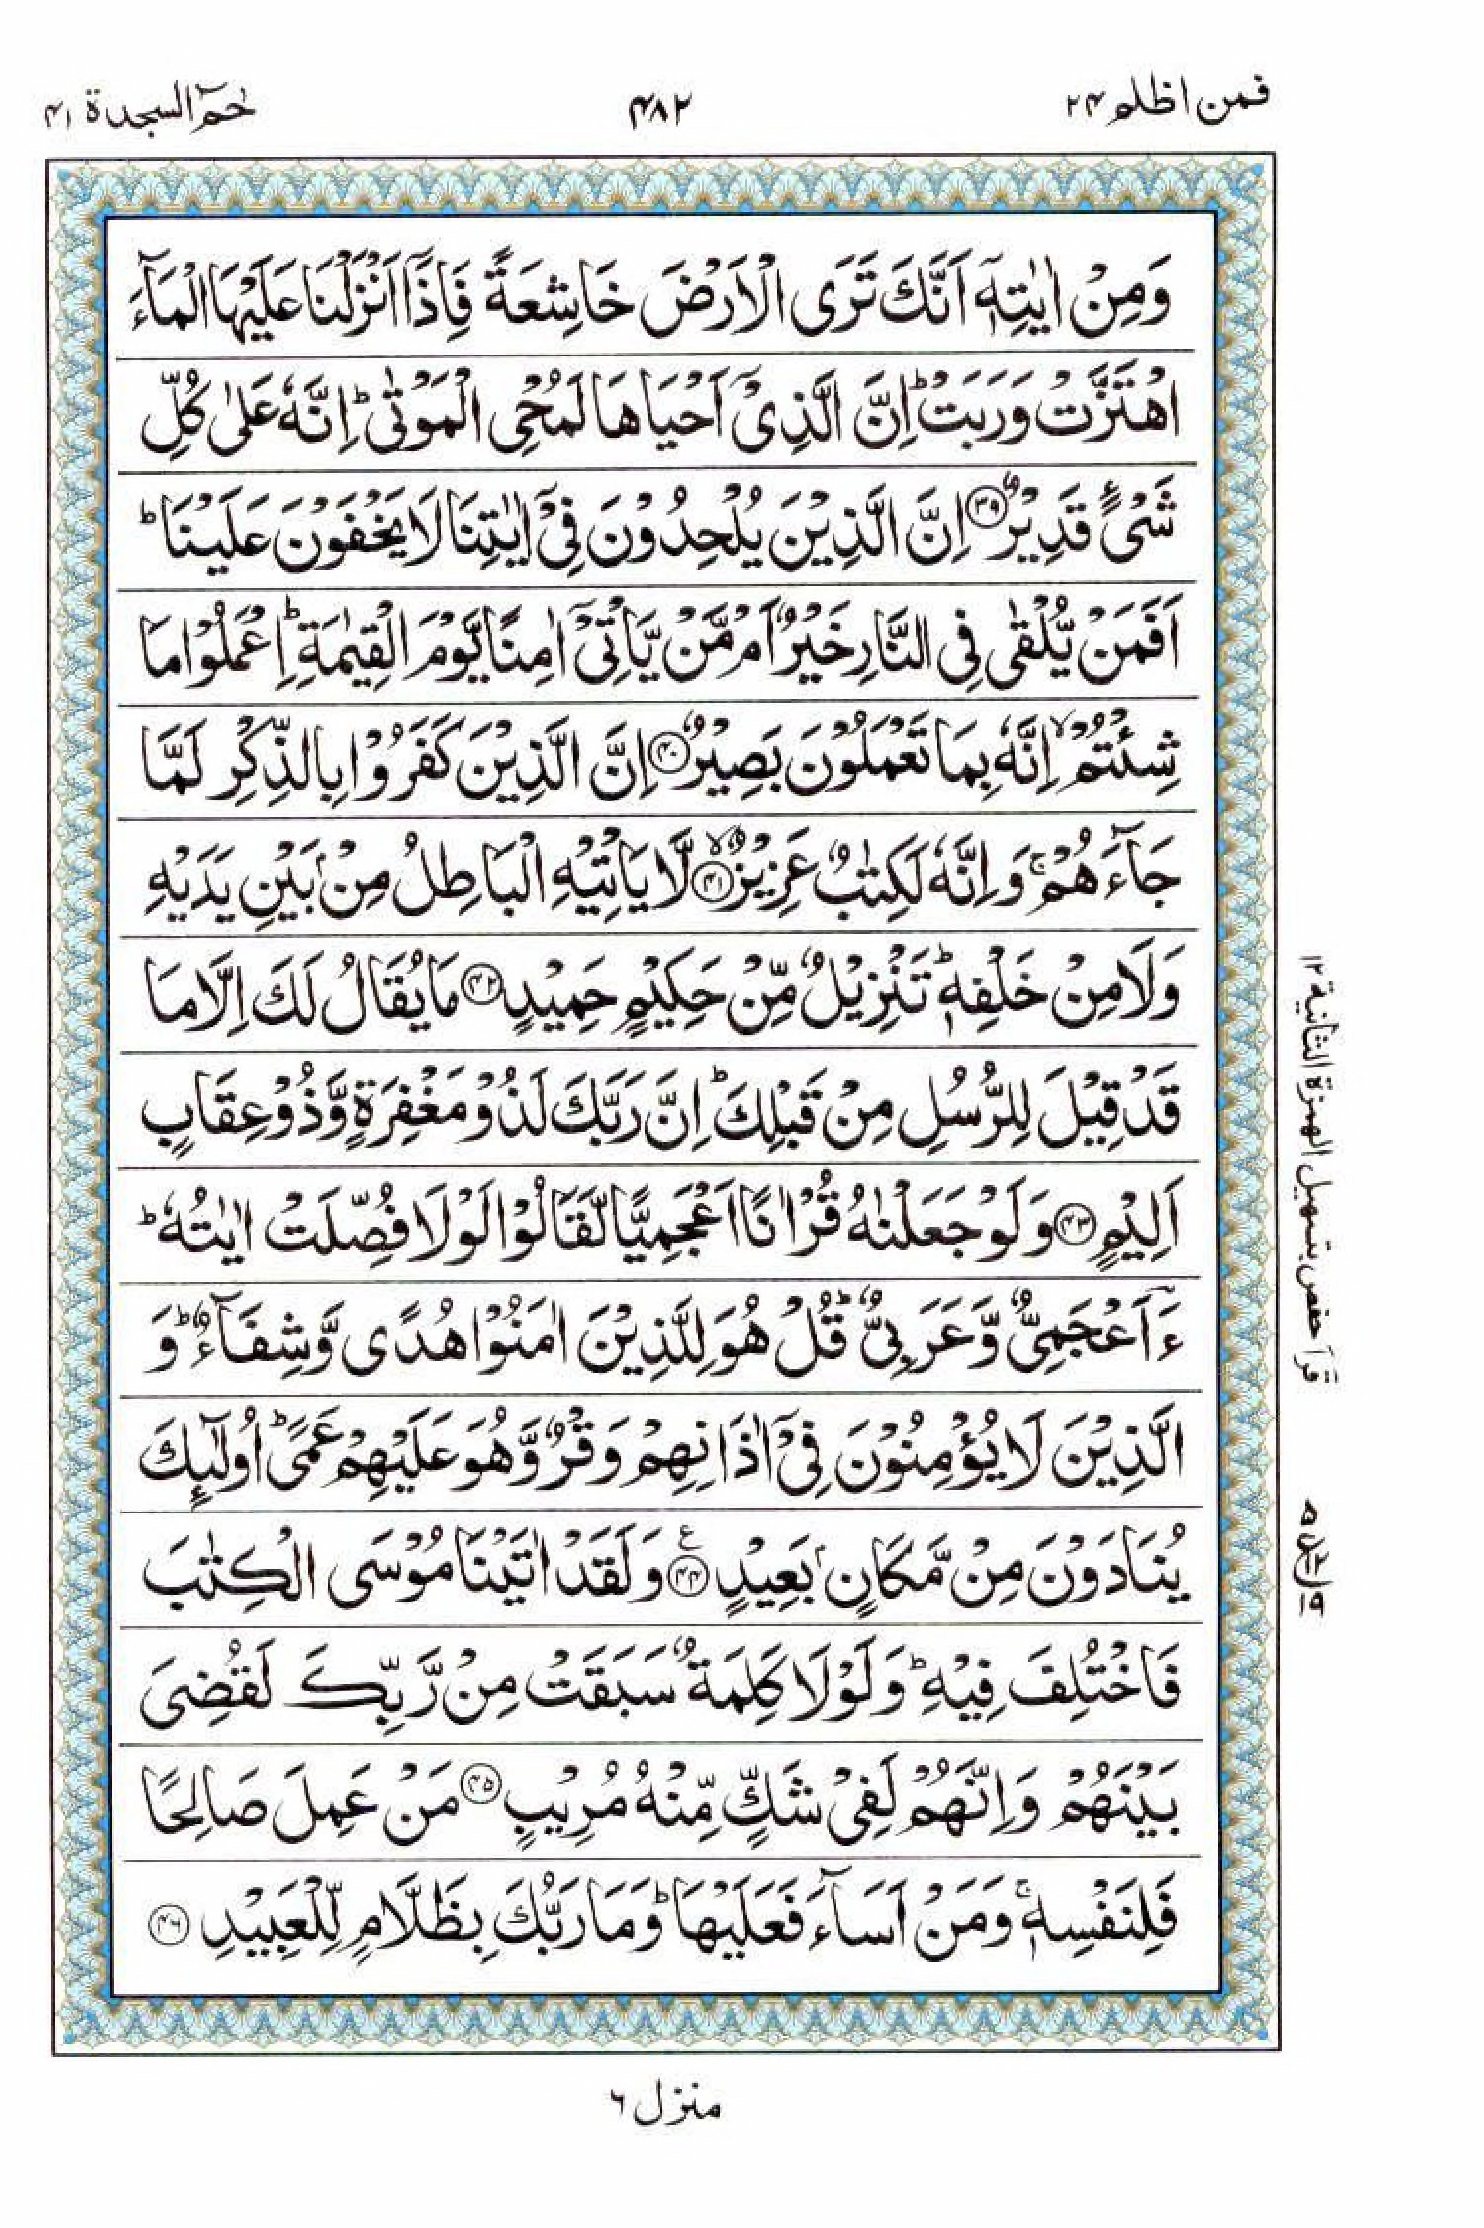 فمن اظلم ۲۴
۴۸۲
حٰمٓ السجدة ۴۱
وَمِنْ اٰيٰتِهٖۤ اَنَّكَ تَرَى الْاَرْضَ خَاشِعَةً فَاِذَاۤ اَنْزَلْنَا عَلَيْهَا الْمَآءَ
اهْتَزَّتْ وَرَبَتْ ؕ اِنَّ الَّذِيْۤ اَحْيَاهَا لَمُحْيِ الْمَوْتٰى ؕ اِنَّهٗ عَلٰى كُلِّ
شَيْءٍ قَدِيْرٌ ۝۳۹ اِنَّ الَّذِيْنَ يُلْحِدُوْنَ فِيْۤ اٰيٰتِنَا لَا يَخْفَوْنَ عَلَيْنَا ؕ
اَفَمَنْ يُّلْقٰى فِي النَّارِ خَيْرٌ اَمْ مَّنْ يَّاْتِيْۤ اٰمِنًا يَّوْمَ الْقِيٰمَةِ ؕ اِعْمَلُوْا مَا
شِئْتُمْ ۙ اِنَّهٗ بِمَا تَعْمَلُوْنَ بَصِيْرٌ ۝۴۰ اِنَّ الَّذِيْنَ كَفَرُوْا بِالذِّكْرِ لَمَّا
جَآءَهُمْ ۚ وَاِنَّهٗ لَكِتٰبٌ عَزِيْزٌ ۙ۝۴۱ لَّا يَاْتِيْهِ الْبَاطِلُ مِنْۢ بَيْنِ يَدَيْهِ
وَلَا مِنْ خَلْفِهٖ ؕ تَنْزِيْلٌ مِّنْ حَكِيْمٍ حَمِيْدٍ ۝۴۲ مَا يُقَالُ لَكَ اِلَّا مَا
قَدْ قِيْلَ لِلرُّسُلِ مِنْ قَبْلِكَ ؕ اِنَّ رَبَّكَ لَذُوْ مَغْفِرَةٍ وَّذُوْ عِقَابٍ
اَلِيْمٍ ۝۴۳ وَلَوْ جَعَلْنٰهُ قُرْاٰنًا اَعْجَمِيًّا لَّقَالُوْا لَوْلَا فُصِّلَتْ اٰيٰتُهٗ ؕ
ءَاَعْجَمِيٌّ وَّعَرَبِيٌّ ؕ قُلْ هُوَ لِلَّذِيْنَ اٰمَنُوْا هُدًى وَّشِفَآءٌ ؕ وَ
الَّذِيْنَ لَا يُؤْمِنُوْنَ فِيْۤ اٰذَانِهِمْ وَقْرٌ وَّهُوَ عَلَيْهِمْ عَمًى ؕ اُولٰٓئِكَ
يُنَادَوْنَ مِنْ مَّكَانٍۭ بَعِيْدٍ ۝۴۴ ع وَلَقَدْ اٰتَيْنَا مُوْسَى الْكِتٰبَ
فَاخْتُلِفَ فِيْهِ ؕ وَلَوْلَا كَلِمَةٌ سَبَقَتْ مِنْ رَّبِّكَ لَقُضِيَ
بَيْنَهُمْ وَاِنَّهُمْ لَفِيْ شَكٍّ مِّنْهُ مُرِيْبٍ ۝۴۵ مَنْ عَمِلَ صَالِحًا
فَلِنَفْسِهٖ ۚ وَمَنْ اَسَآءَ فَعَلَيْهَا ؕ وَمَا رَبُّكَ بِظَلَّامٍ لِّلْعَبِيْدِ ۝۴۶
قرأ حفص بتسهيل الهمزة الثانية ۱۲
منزل ۶